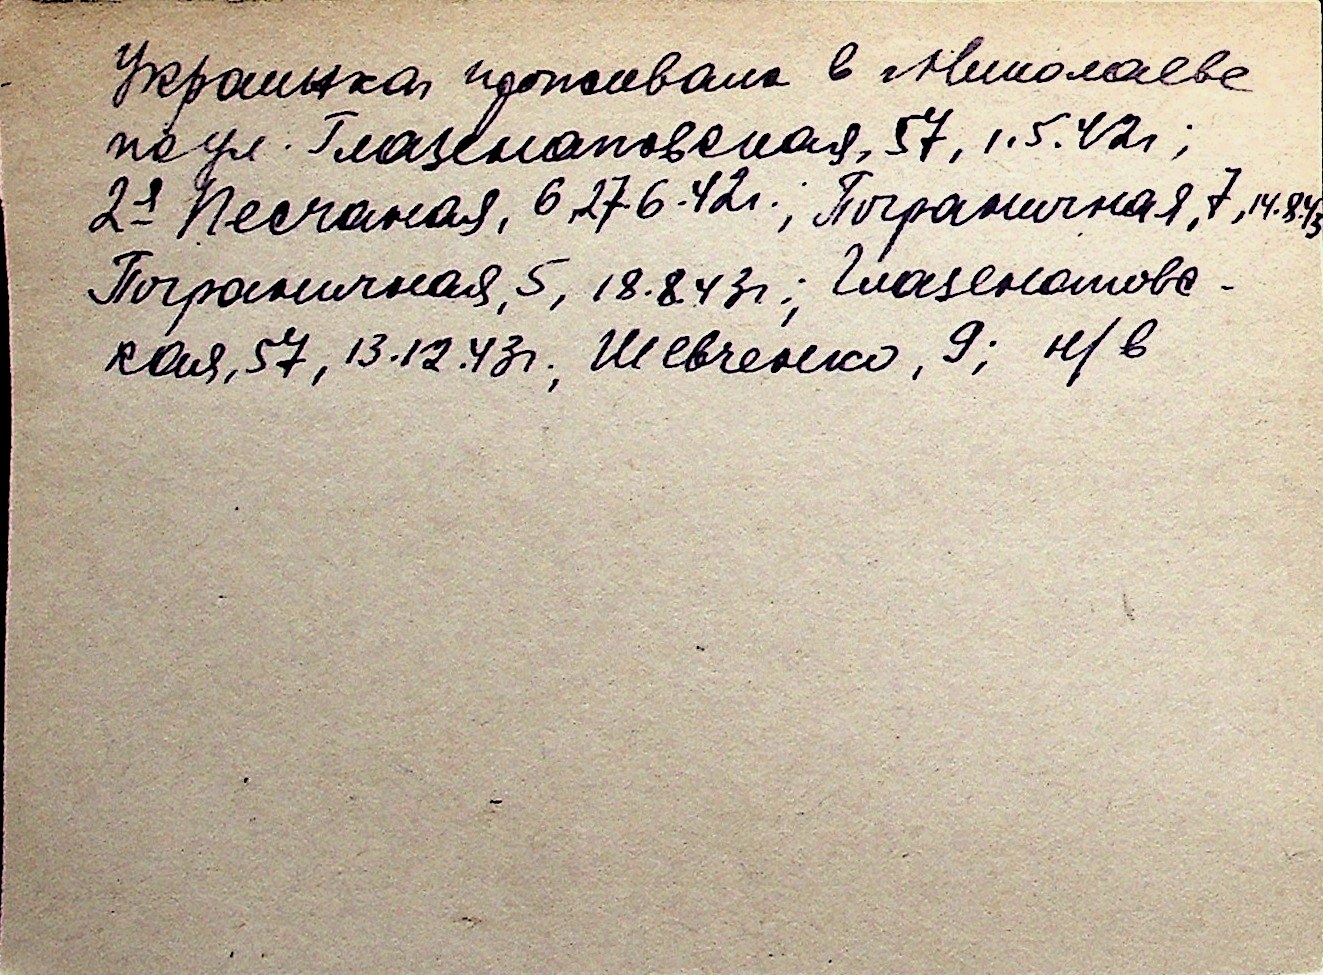 Украинка, проживала в г. Николаеве
по ул. Глазенаповская, 57, 1.5.42г;
2я Песчаная, 6, 27.6.42г.; Пограничная, 7, 14.8.43
Пограничная, 5, 18.8.43г.; Глазенаповс-
кая, 57, 13.12.43г.; Шевченко, 9; н/в